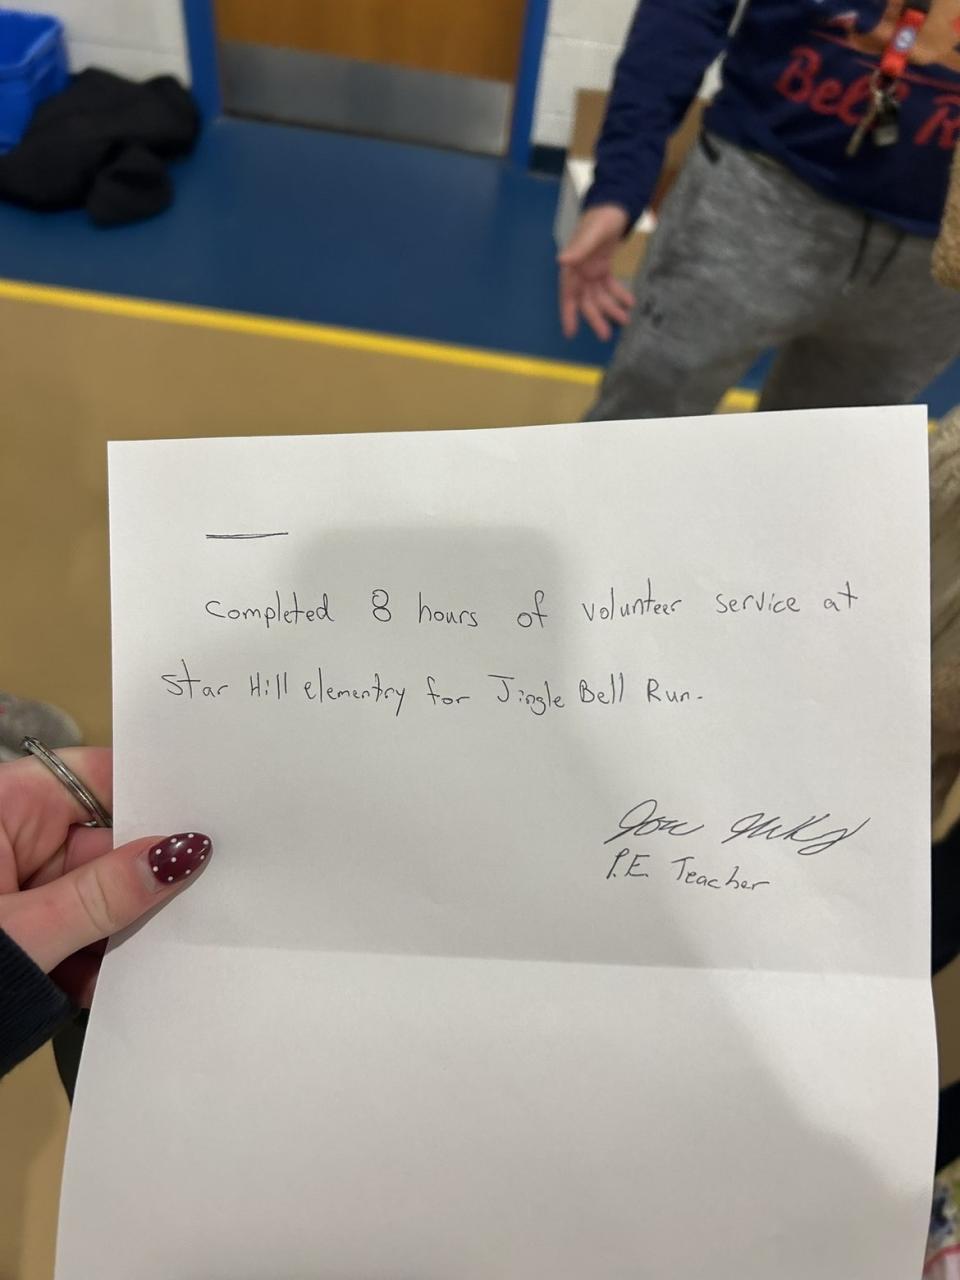 Bell R
Completed 8 hours of volunteer service at
Star Hill elementry for Jingle Bell Run.
P.E. Teacher